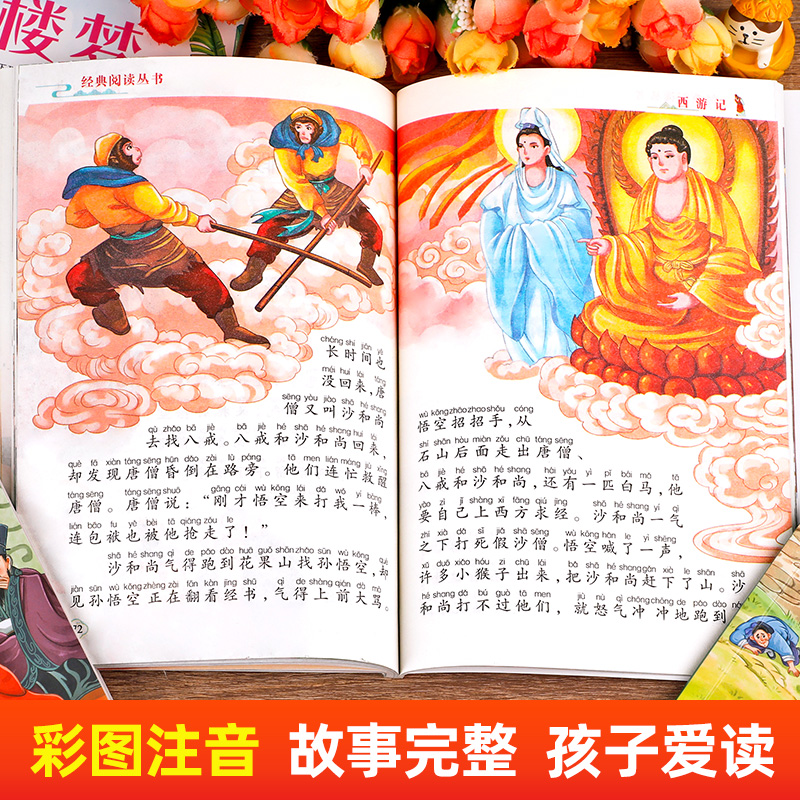 楼梦
经典阅读丛书
cháng shí jiān yě
长时间也
méi huí lái táng
没回来,唐
sēng yòu jiào shā hé shang
僧又叫沙和尚
qù zhǎo bā jiè bā jiè hé shā hé shang huí lái
去找八戒。八戒和沙和尚回来,
què fā xiàn táng sēng hūn dǎo zài lù páng tā men lián máng jiù xǐng
却发现唐僧昏倒在路旁。他们连忙救醒
táng sēng táng sēng shuō gāng cái wù kōng lái dǎ wǒ yí bàng
唐僧。唐僧说:“刚才悟空来打我一棒,
lián bāo fu yě bèi tā qiǎng zǒu le
连包袱也被他抢走了!”
shā hé shang qì de pǎo dào huā guǒ shān zhǎo sūn wù kōng què
沙和尚气得跑到花果山找孙悟空,却
jiàn sūn wù kōng zhèng zài fān kàn jīng shū qì de shàng qián dà mà
见孙悟空正在翻看经书,气得上前大骂。
72
西游记
wù kōng zhāo zhao shǒu cóng
悟空招招手,从
shí shān hòu miàn zǒu chū táng sēng
石山后面走出唐僧、
bā jiè hé shā hé shang hái yǒu yì pǐ bái mǎ tā
八戒和沙和尚,还有一匹白马,他
yào zì jǐ shàng xī fāng qiú jīng shā hé shang yí qì
要自己上西方求经。沙和尚一气
zhī xià dǎ sǐ jiǎ shā sēng wù kōng hǎn le yì shēng
之下打死假沙僧。悟空喊了一声,
xǔ duō xiǎo hóu zi chū lái bǎ shā hé shang gǎn xià le shān shā
许多小猴子出来,把沙和尚赶下了山。沙
hé shang dǎ bú guò tā men jiù nù qì chōng chōng de pǎo dào
和尚打不过他们,就怒气冲冲地跑到
彩图注音 故事完整 孩子爱读